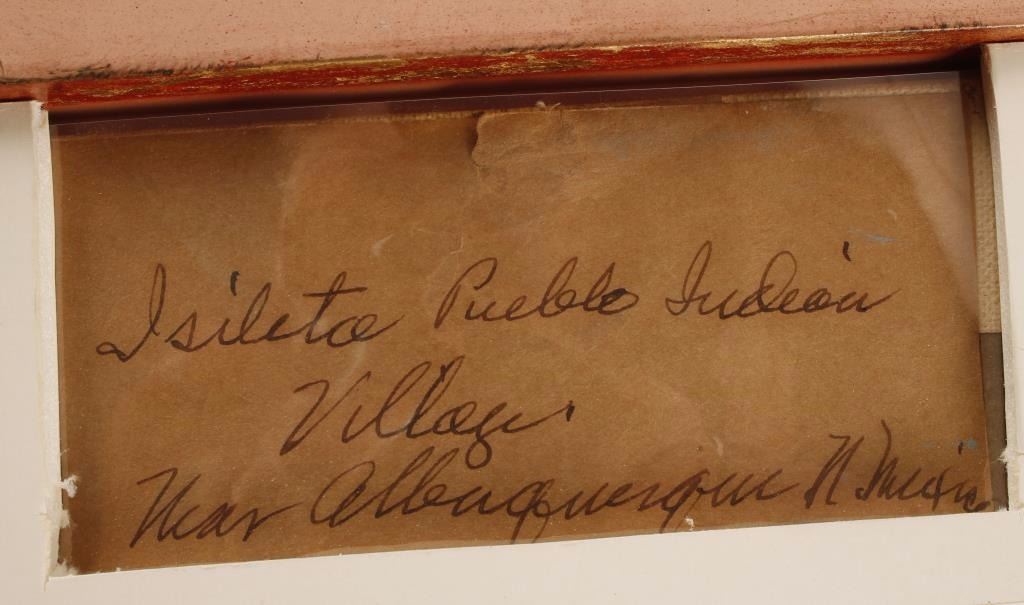 Isileta Pueblo Indian
Village.
Near Albuquerque N. Mexico